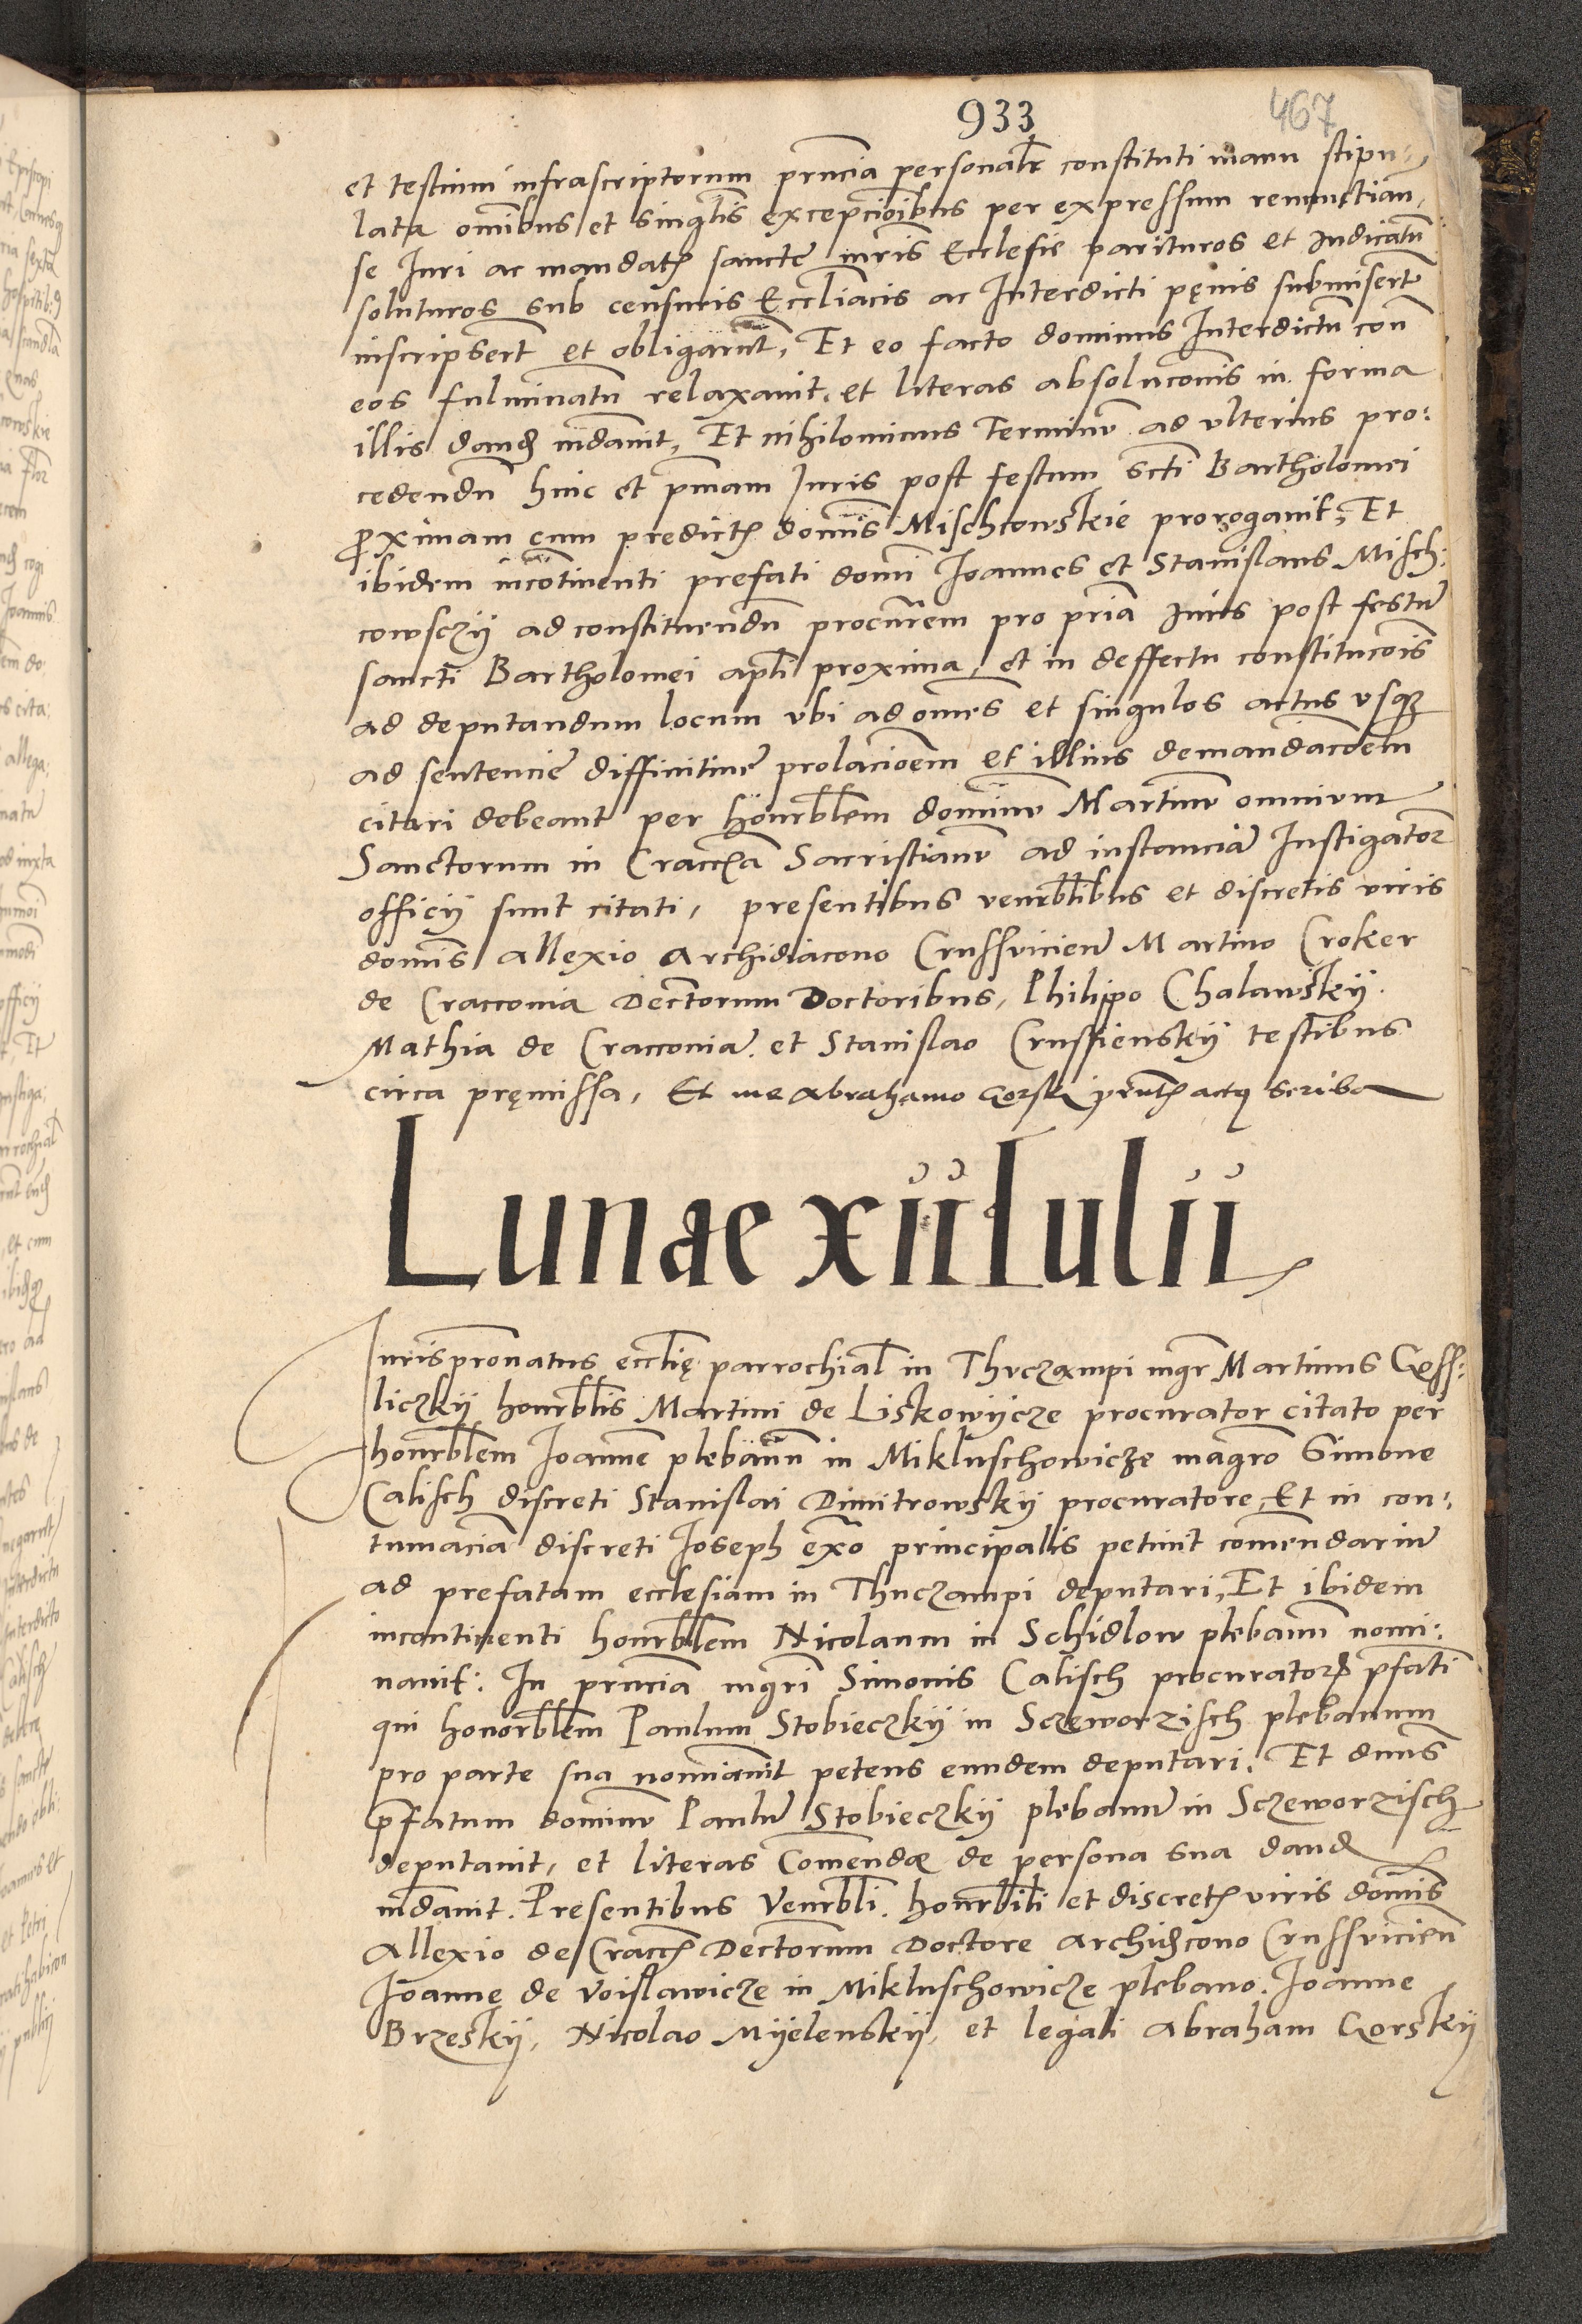 933
467
et testium infrascriptorum pñcia personalr constituti manu stipu-
lata omibus et singulis excepcioibus per expressum renunctian,
se Iuri ac mandatis sancte mris Ecclesie parituros et Iudicatũ
soluturos sub censuris Eccliacis ac Interdicti pęnis submisert
inscripsert et obligarũt, Et eo facto dominus Interdictũ con
eos fulminatũ relaxavit, et literas absoluconis in forma
illis dand mdavit, Et nihilominus Terminũ ad ulterius pro:
cedendũ hinc et pmam Iuris post festum Scti Bartholomei
proximam cum predictis domis Mischcowskie prorogavit, Et
ibidem incõtinenti prefati domi Ioannes et Stanislaus Misch:
cowsczÿ ad constituendũ procurẽm pro priã Iuris post festũ
sancti Bartholomei apli proxima, et in deffectu constitucõis
ad deputandum locum ubi ad omẽs et singulos actus usque
ad sentencie diffinitive prolacioẽm et illius demandacoẽm
citari debeant per honrablem dominũ Martinũ omnium
Sanctorum in Cracca Sacristianũ ad instanciã Instigator
officÿ sunt citati, presentibus venrablibus et discretis viris
domis Allexio Archidiacono Crussvicien Martino Croker
de Cracconia Dectorum Doctoribus, Philippo Chalawskÿ.
Mathia de Cracconia. et Stanislao Crussienskÿ testibus
circa pręmissa, Et me Abrahamo Gorsky pñtis actus scriba
Lunae xii Iulii
Iurispronatus ecclię parrochial in Thuczampi mgr Martinus Goss:
liczkÿ honrablis Martini de Liskowÿcze procurator citato per
honrablem Ioannẽ plebanũ in Mikluschowicze magro Simone
Calisch discreti Stanislai Dimitrowskÿ procuratore, Et in con:
tumaciã discreti Ioseph exo principalis petivit comendariũ
ad prefatam ecclesiam in Thuczampi deputari, Et ibidem
incontinenti honrablem Nicolaum in Schidlow plebanũ nomi:
navit: In pñcia mgri Simonis Calisch procurator pfati
qui honorblem Paulum Stobieczkÿ in Sczeworzisch plebanum
pro parte sua nomiavit petens eundem deputari. Et dnus
pfatum dominũ Paulũ Stobieczkÿ plebanũ in Sczeworzisch
deputavit, et literas Comendæ de persona sua dand
mdavit. Presentibus Venrabli. honrabili et discretis viris domis
Allexio de Cracc Dectorum Doctore Archidcono Crussvicien
Ioanne de Voislawicze in Mikluschowicze plebano. Ioanne
Brzeskÿ, Nicolao Mÿelenskÿ, et legali Abraham Gorskÿ